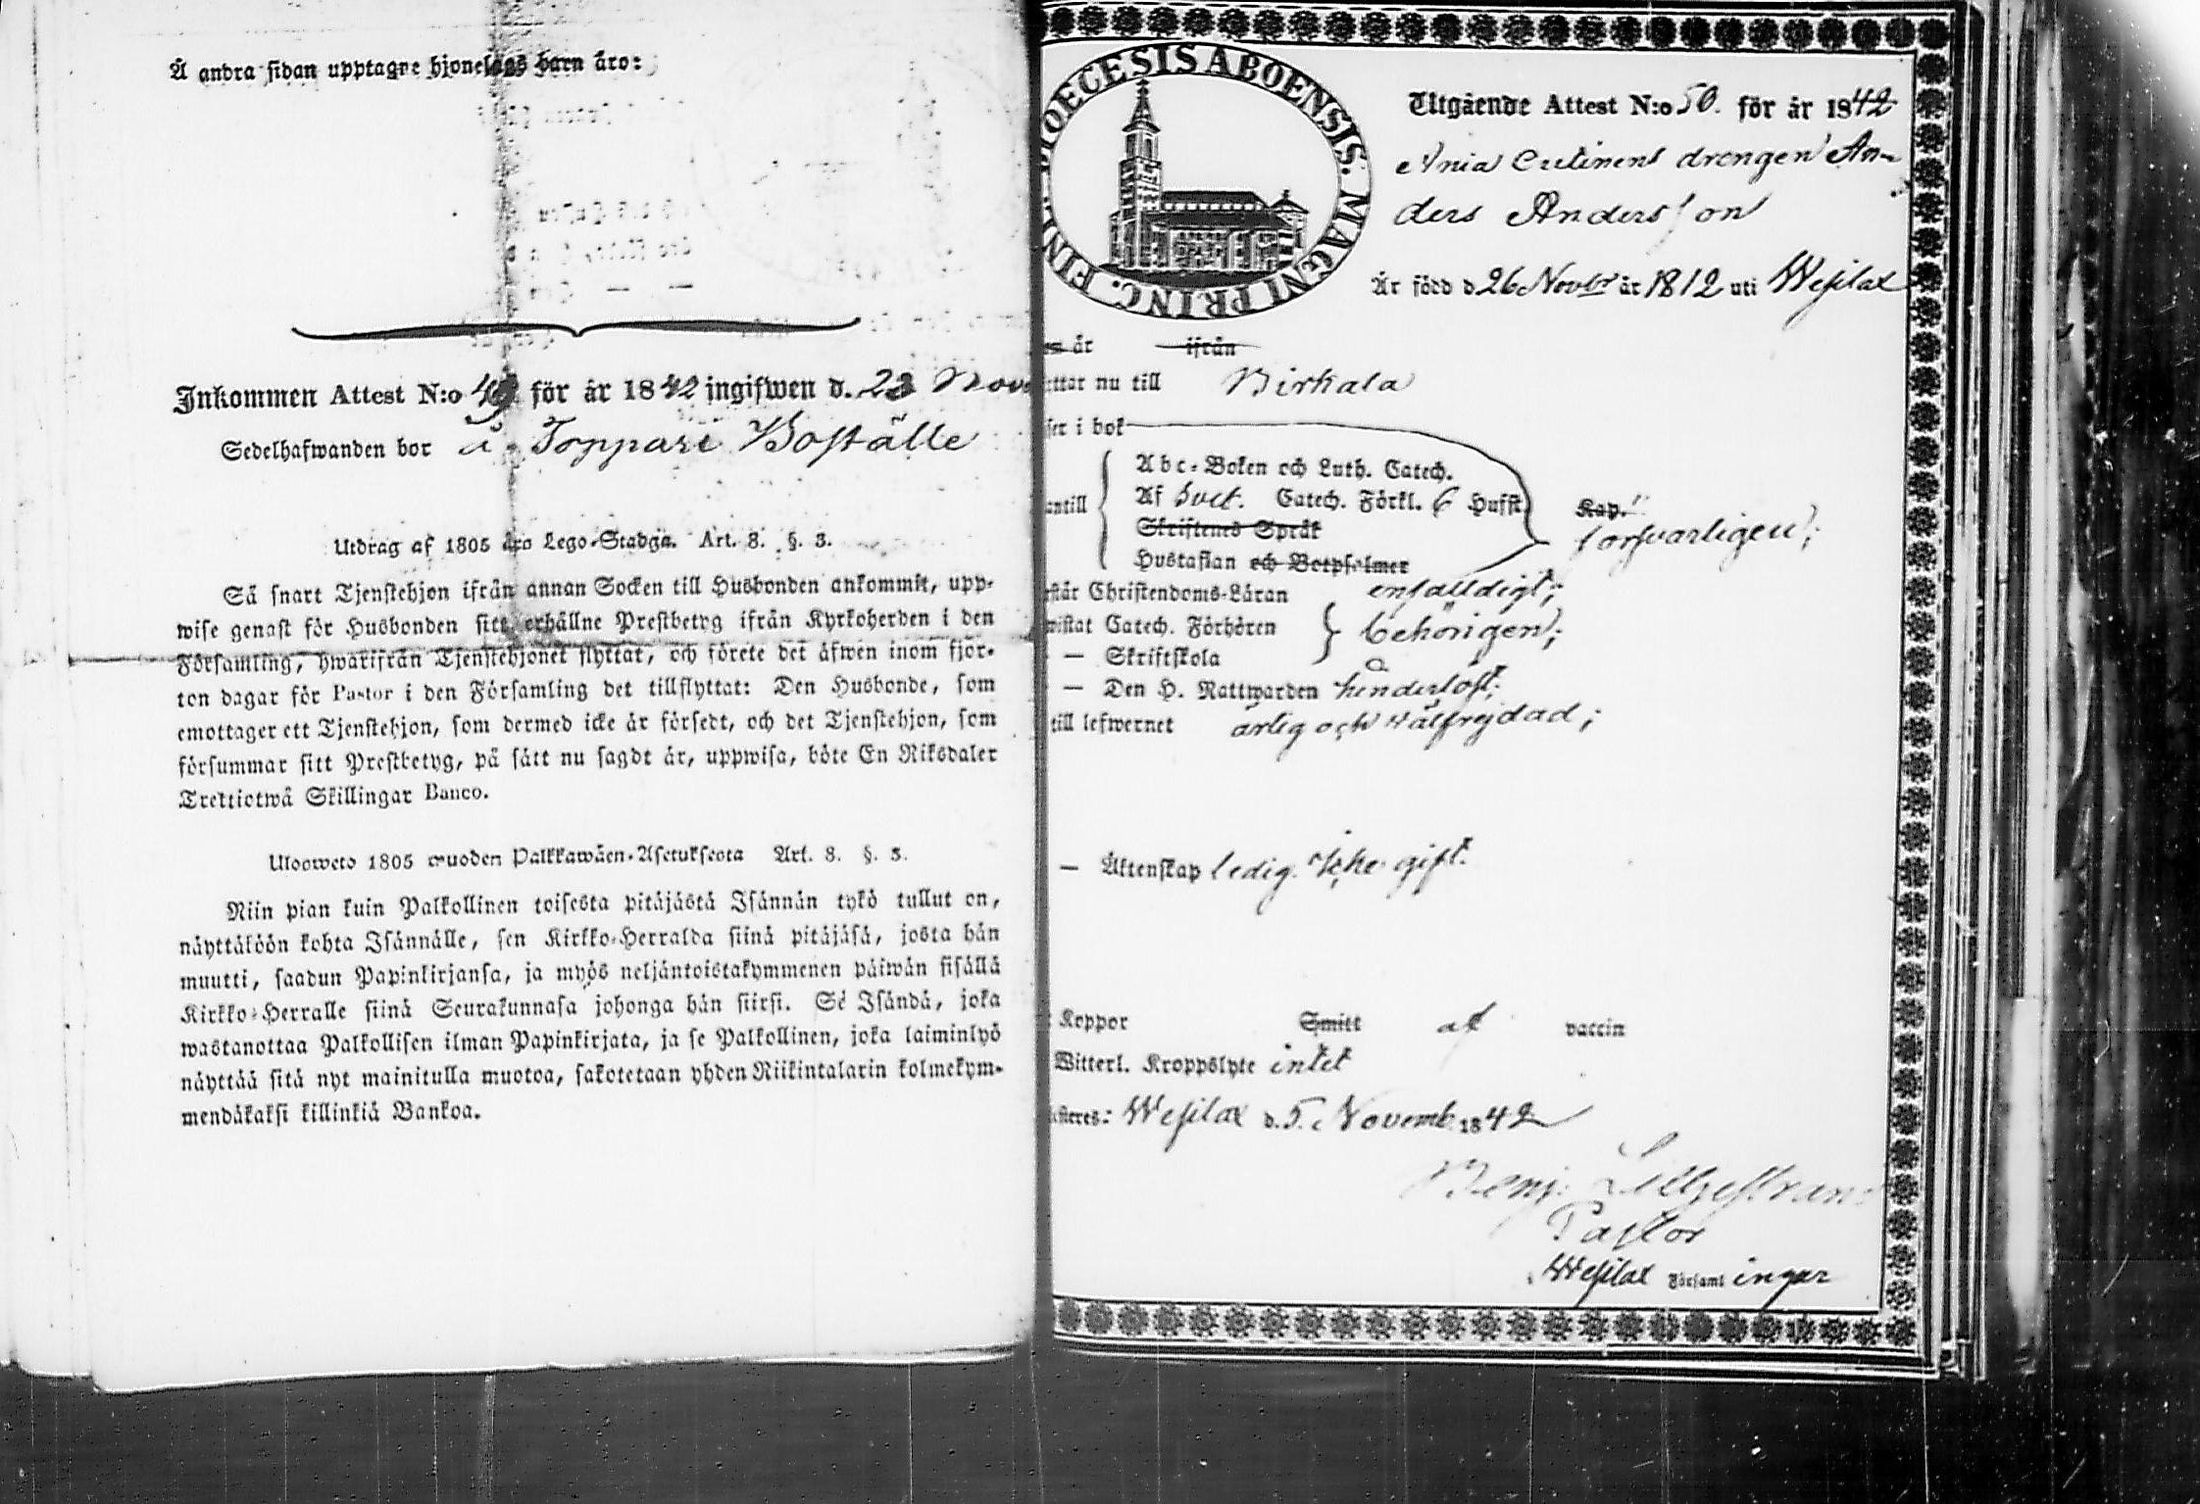 Å andra sidan upptagne hjonelags barn äro:
Inkommen Attest N:o för år 1842 ingifwen d. 23 Nov
Sedelhafwanden bor å Toppari Boställe
Utdrag af 1805 års Lego-Stadga. Art. 8. §. 3.
Så snart Tjenstehjon ifrån annan Socken till Husbonden ankommit, upp-
wise genast för Husbonden sitt erhållne Prestbetyg ifrån Kyrkoherden i den
Församling, hwarifrån Tjenstehjonet flyttat, och förete det äfwen inom fjor-
ton dagar för Pastor i den Församling det tillflyttat: Den Husbonde, som
emottager ett Tjenstehjon, som dermed icke är försedt, och det Tjenstehjon, som
försummar sitt Prestbetyg, på sätt nu sagdt är, uppwisa, böte En Riksdaler
Trettiotwå Skillingar Banco.
Ulosweto 1805 wuoden Palkkawäen-Asetuksesta Art. 8. §. 3.
Niin pian kuin Palkollinen toisesta pitäjästä Isännän tykö tullut on,
näyttäköön kohta Isännälle, sen Kirkko-Herralda siinä pitäjäsä, josta hän
muutti, saadun Papinkirjansa, ja myös neljäntoistakymmenen päiwän sisällä
Kirkko-Herralle siinä Seurakunnasa johonga hän siirsi. Se Isändä, joka
wastanottaa Palkollisen ilman Papinkirjata, ja se Palkollinen, joka laiminlyö
näyttää sitä nyt mainitulla muotoa, sakotetaan yhden Riikintalarin kolmekym-
mendäkaksi killinkiä Bankoa.
DIOECESIS ABOENSIS. MAGNI PRINC. FIN
Utgående Attest N:o 50. för år 1842
drengen An-
ders Andersson
Är född d. 26 Novbr år 1812 uti Wesilax
är ifrån
ttar nu till Birkala
ser i bok
Abc-Boken och Luth. Catech.
antill Af Svet. Catech. Förkl. 6 Hufst. Kap.
Skriftenes Språk försvarligen;
Hustaflan och Botpsalmer
står Christendoms-Läran enfalldigt;
wistat Catech. Förhören behörigen;
— Skriftskola
— Den H. Nattwarden hinderlöst;
till lefwernet ärlig och wälfrejdad;
— Äktenskap ledig. icke gift.
Koppor Smitt af vaccin
Witterl. Kroppslyte intet
steres: Wesilax d. 5. Novemb. 1842
Benj. Lilljestrand
Pastor
Wesilax Församlingar